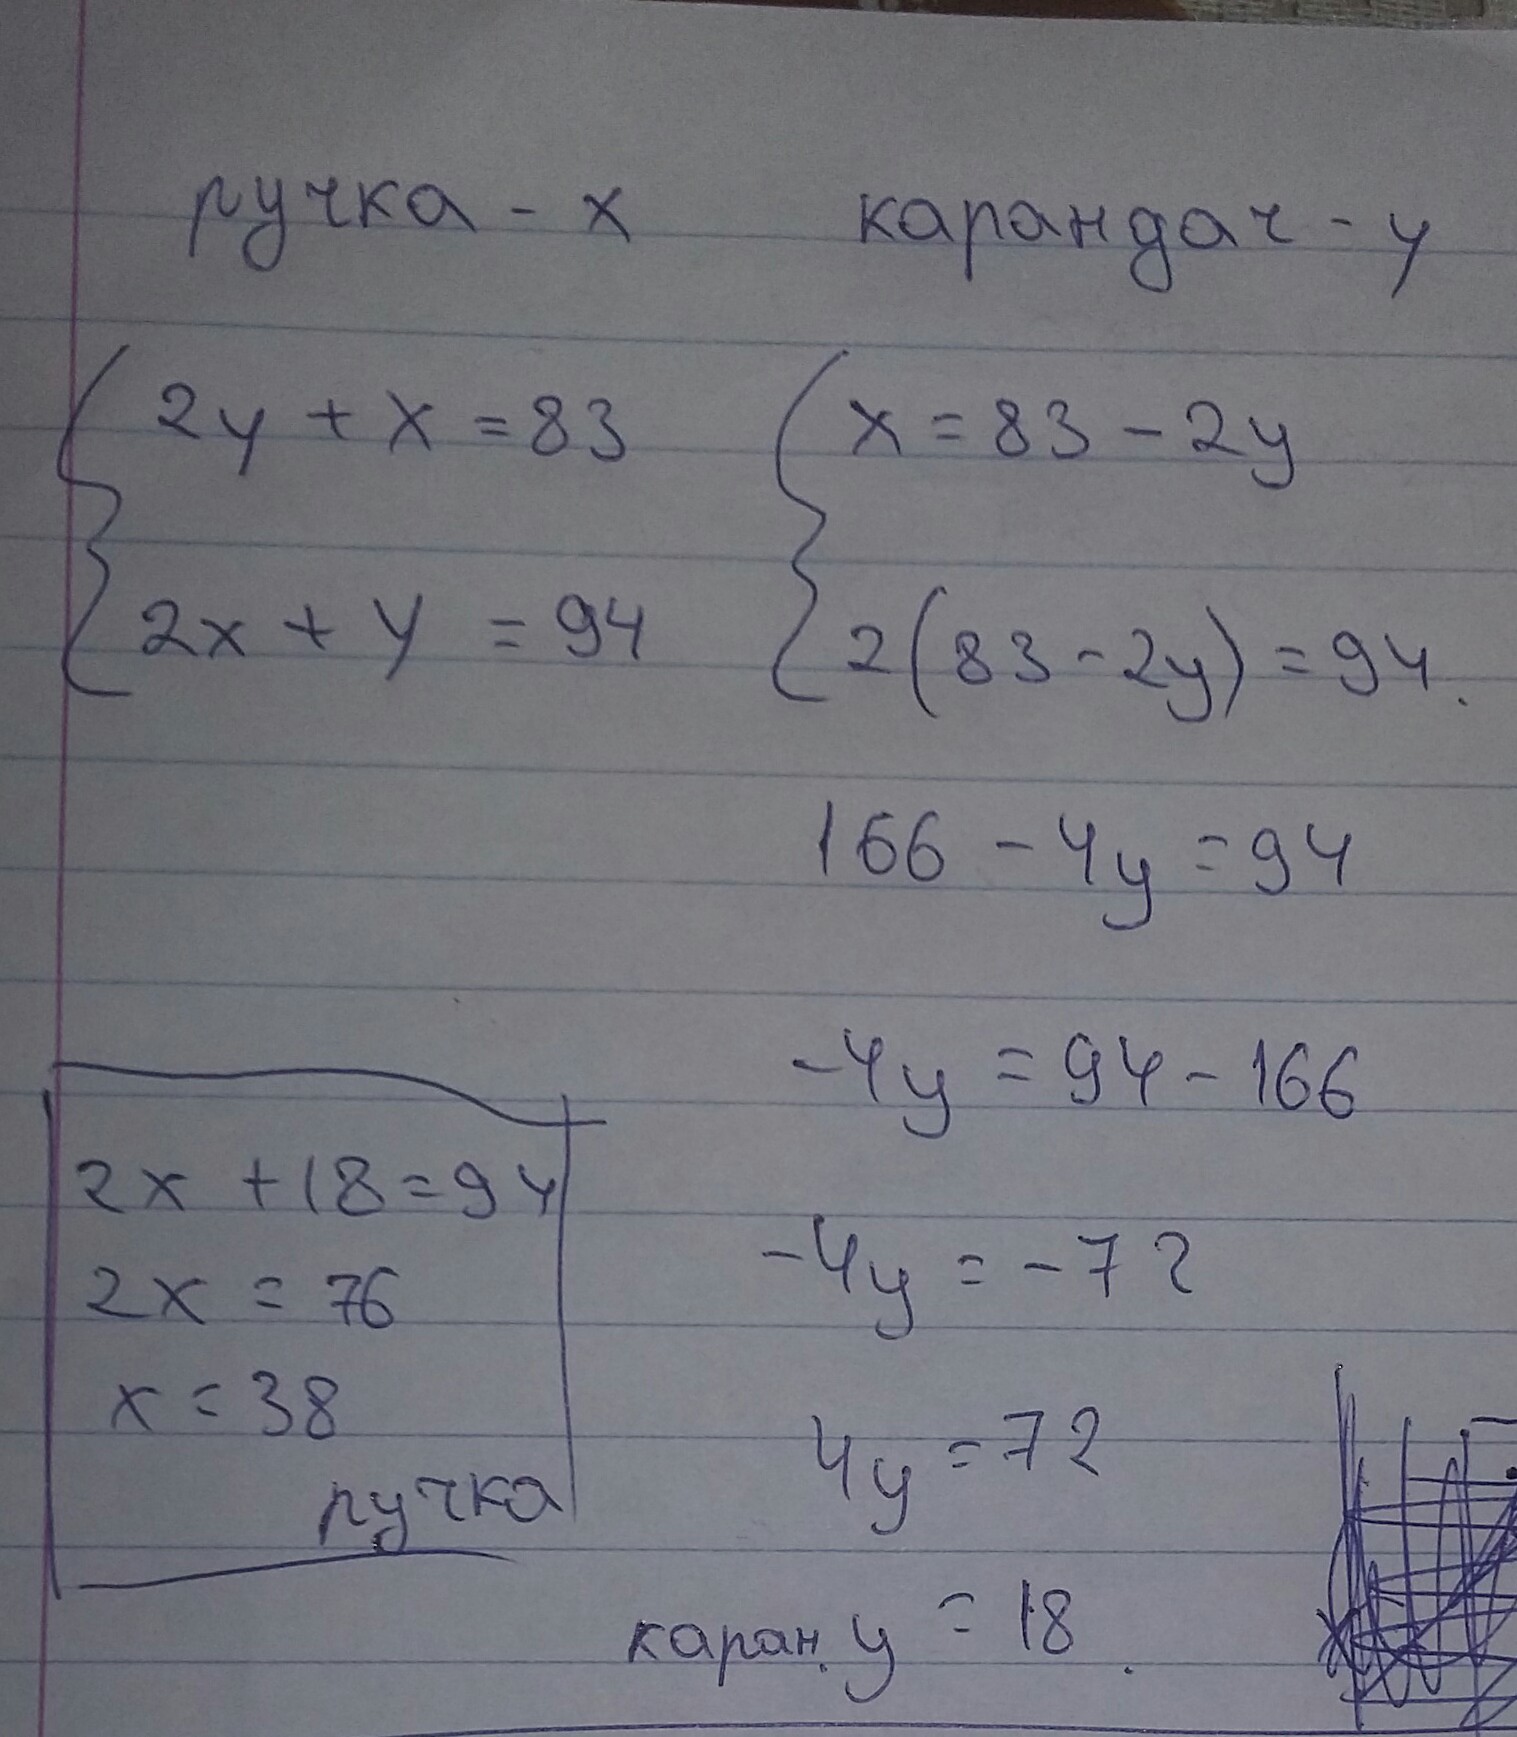 ручка - x карандач - y
2y + x = 83 x = 83 - 2y
2x + y = 94 2(83 - 2y) = 94.
166 - 4y = 94
-4y = 94 - 166
-4y = -72
4y = 72
каран. y = 18.
2x + 18 = 94
2x = 76
x = 38
ручка